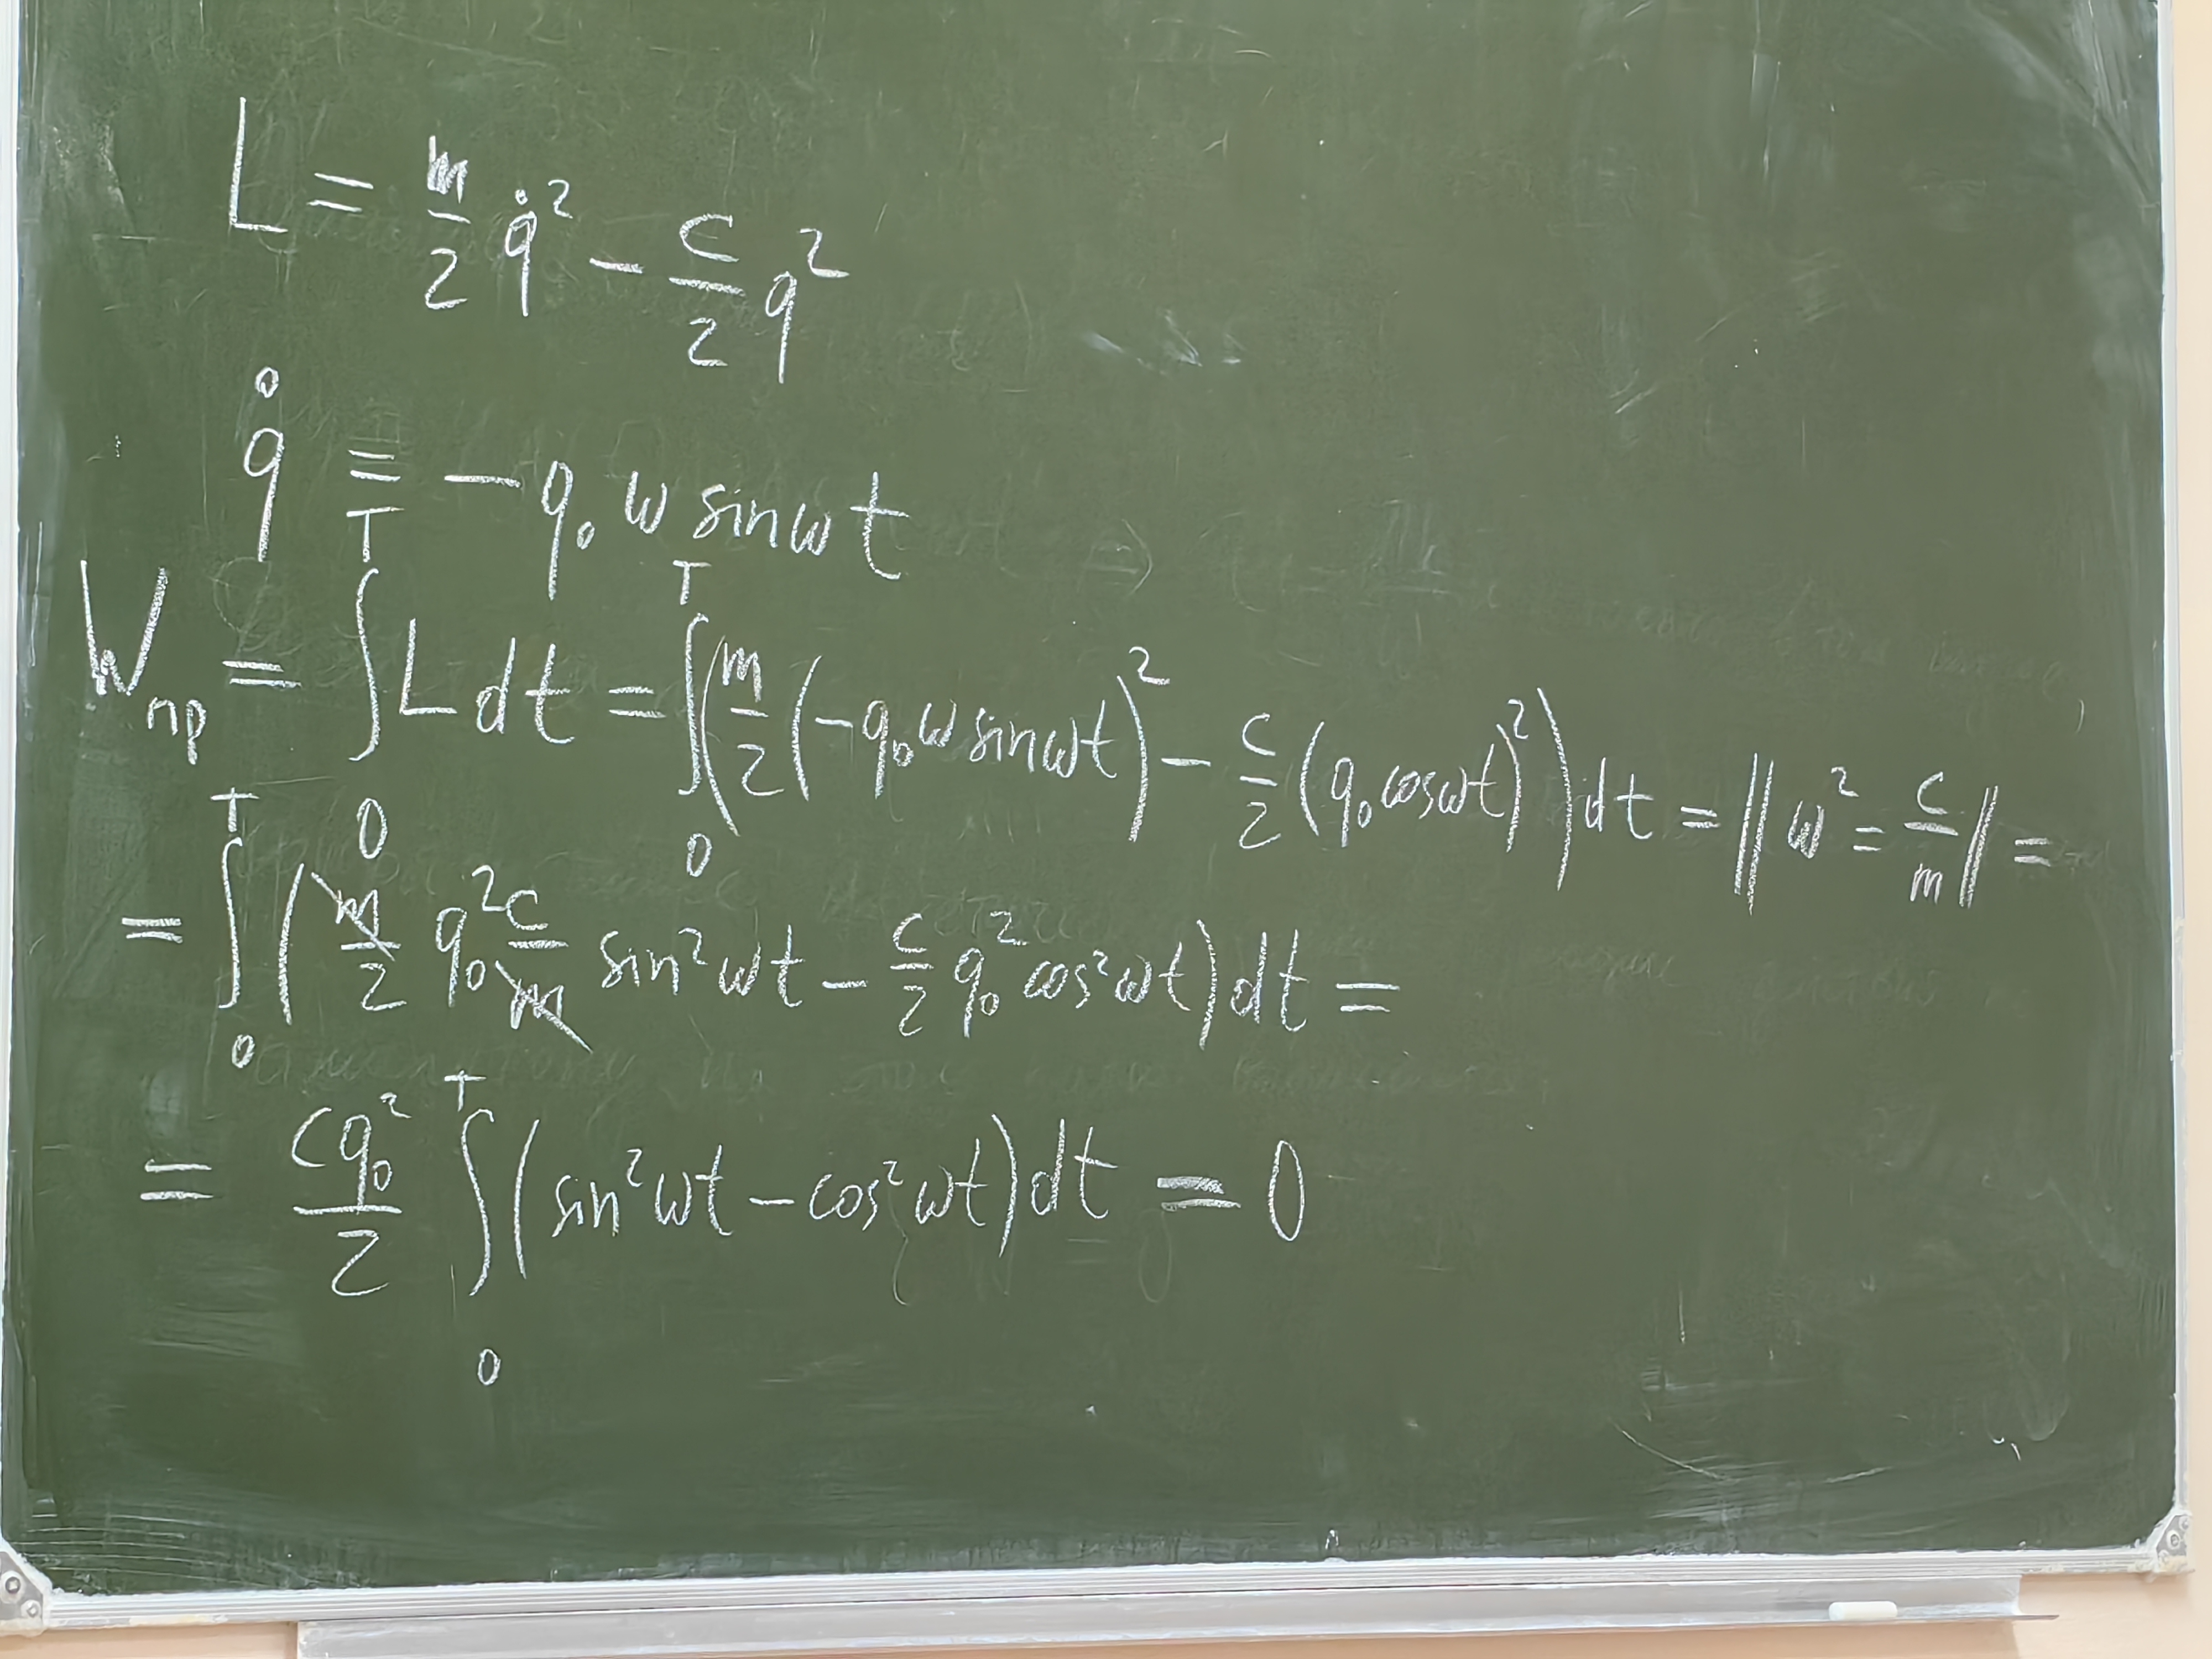 L = m/2 q̇² − c/2 q²
q̇ = −q₀ ω sin ωt
W_пр = ∫₀ᵀ L dt = ∫₀ᵀ (m/2 (−q₀ ω sin ωt)² − c/2 (q₀ cos ωt)²) dt = ‖ω² = c/m‖ =
= ∫₀ᵀ (m/2 q₀² c/m sin² ωt − c/2 q₀² cos² ωt) dt =
= cq₀²/2 ∫₀ᵀ (sin² ωt − cos² ωt) dt = 0